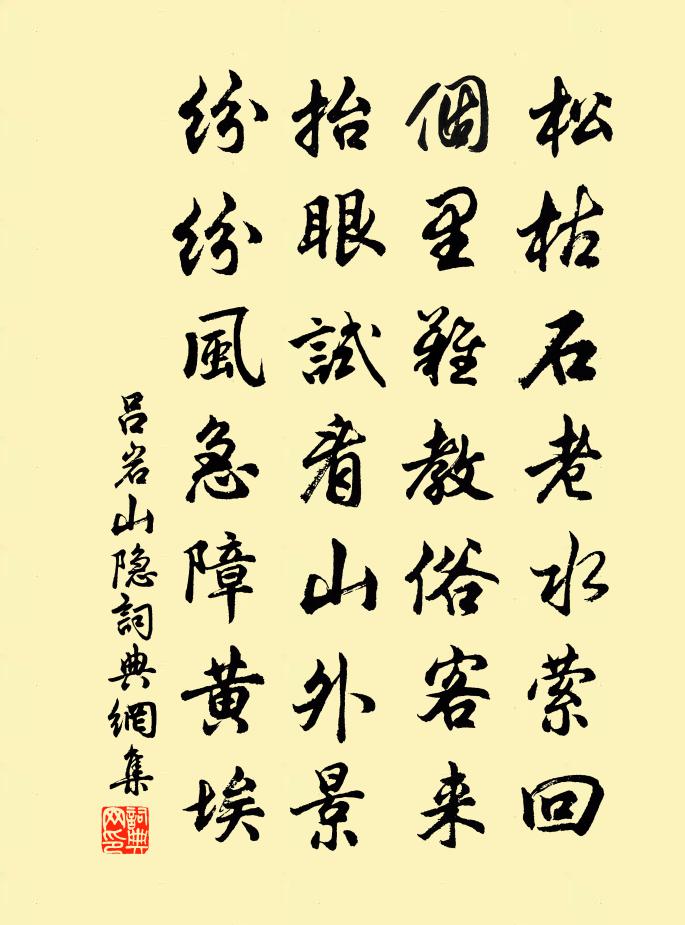 松枯石老水萦回
個里難教俗客来
抬眼試看山外景
紛紛風急障黄埃
吕岩山隐詞典網集
詞典网印